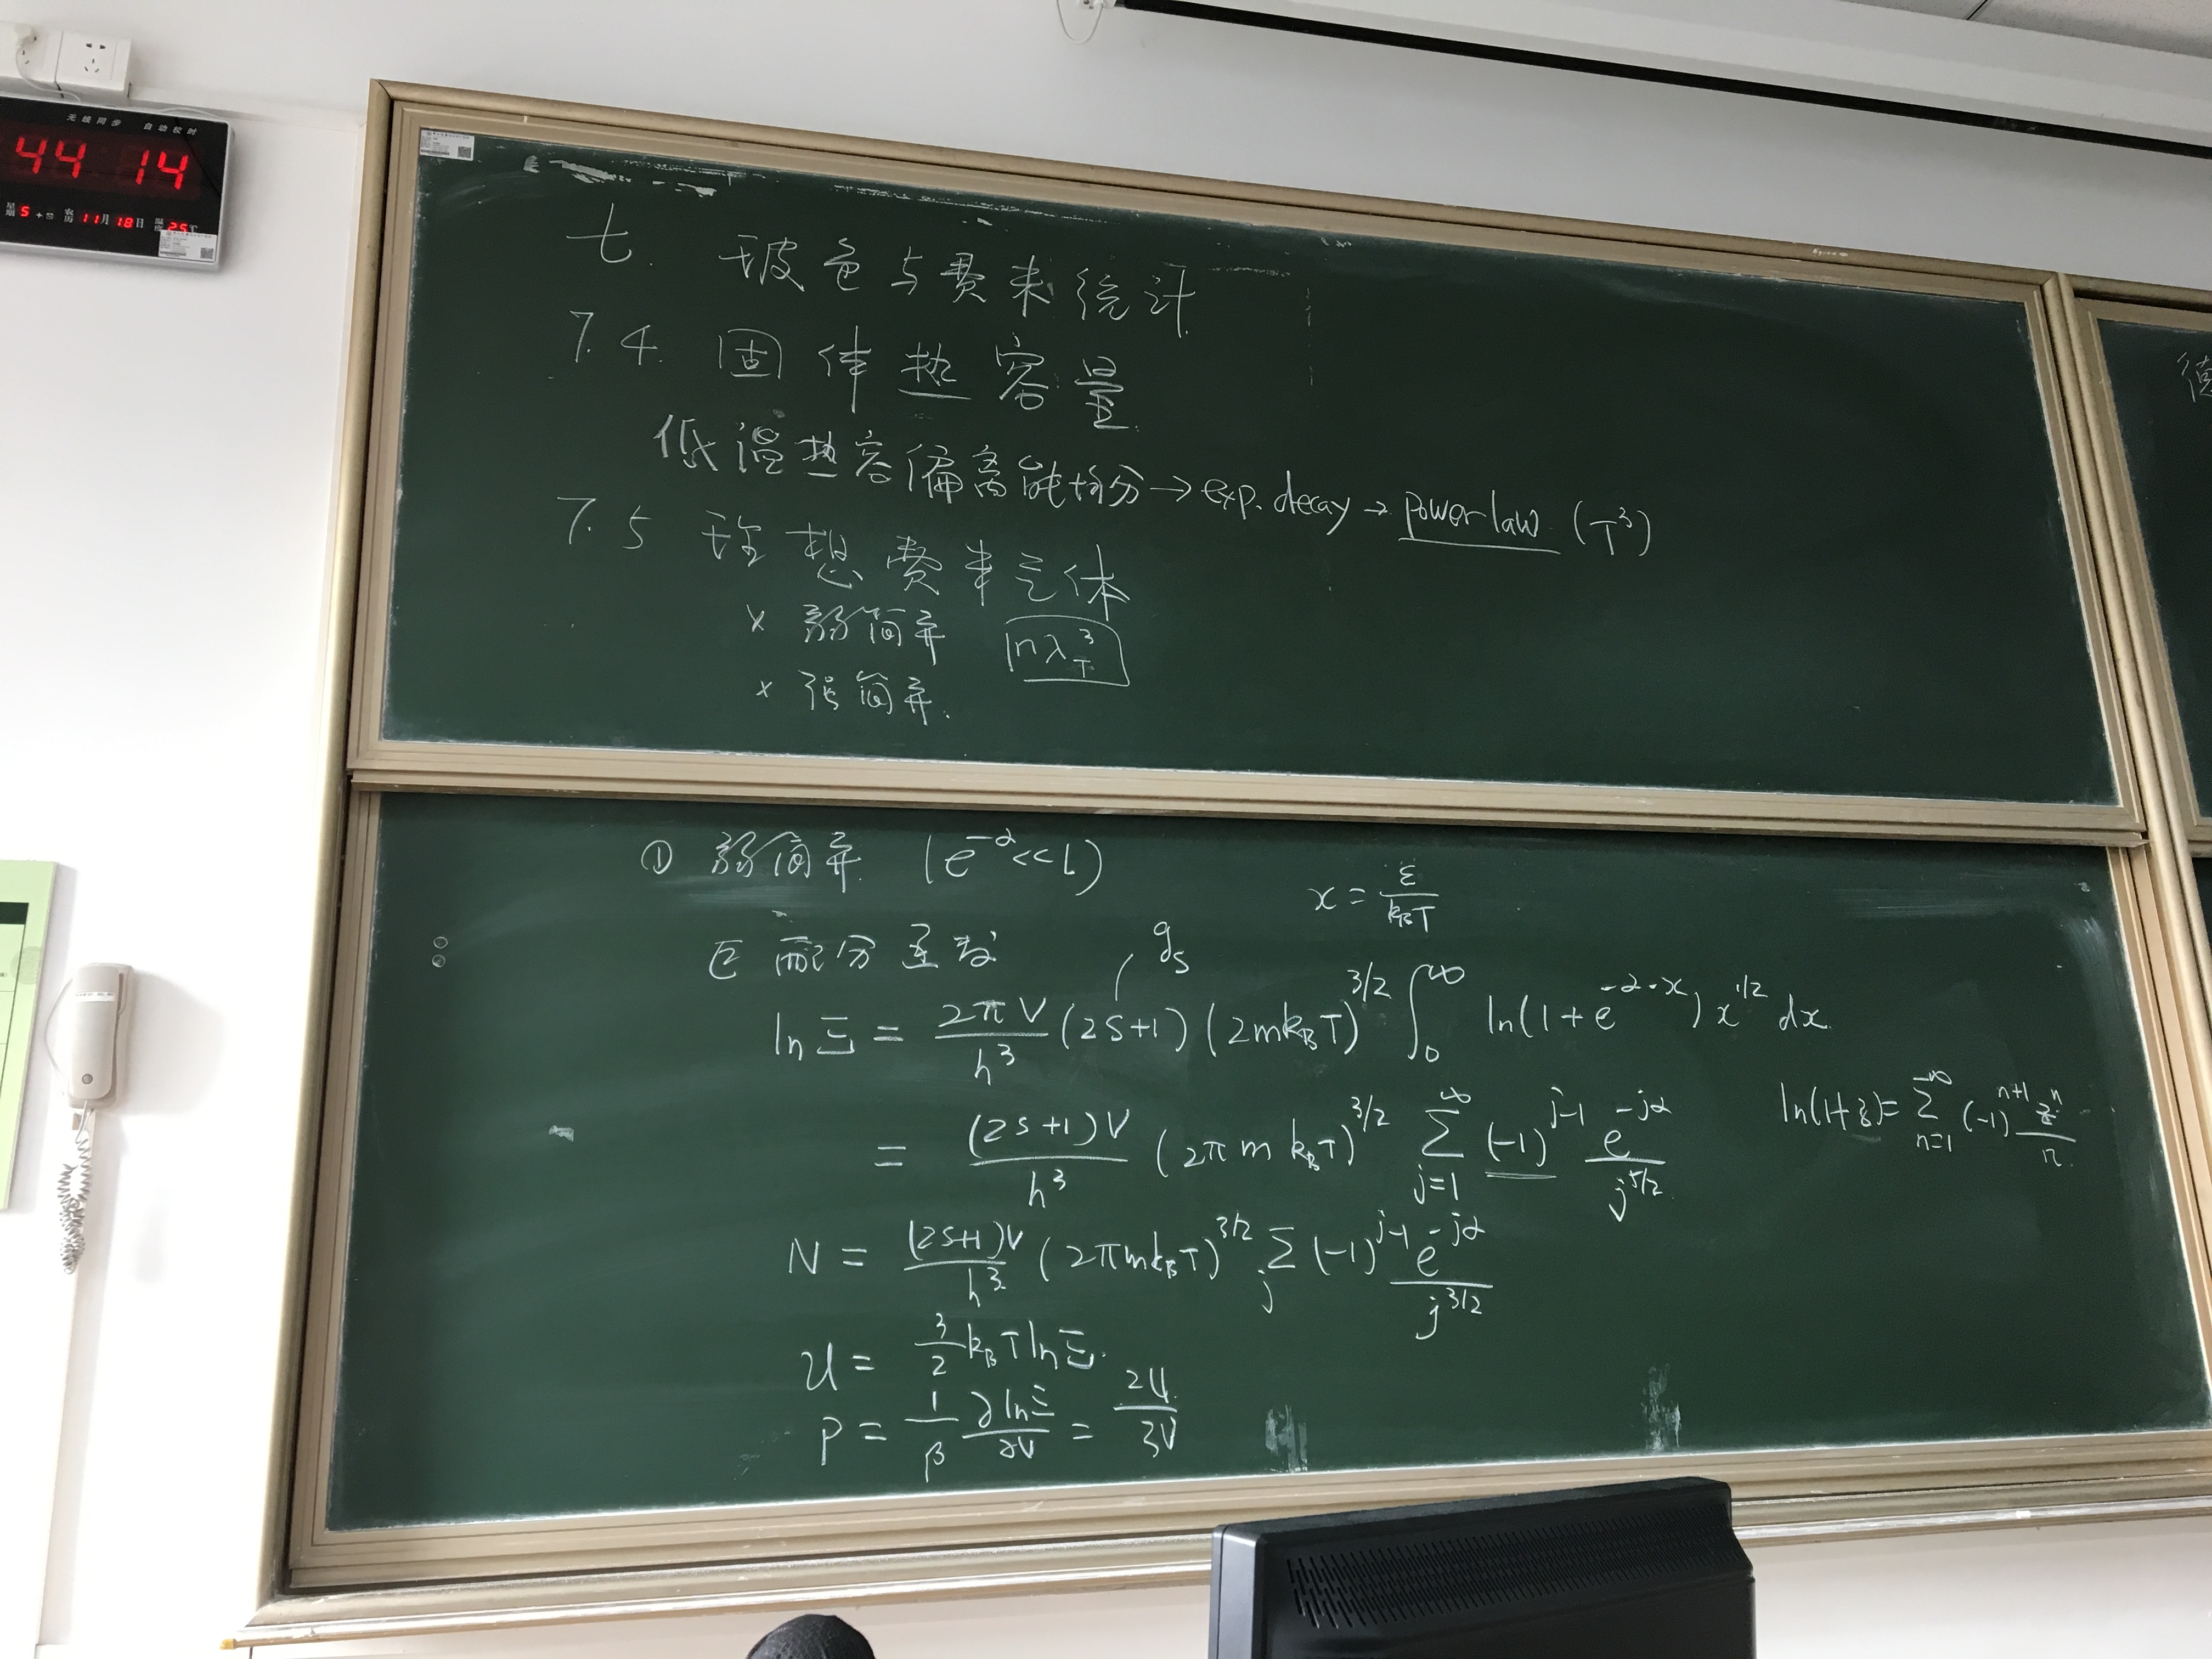 无线同步 自动校时
44 14
星期 5 农历 11月 18日 温度 25℃
七. 玻色与费米统计
7.4. 固体热容量
低温热容偏离能均分→exp. decay→power law (T³)
7.5 理想费米气体
× 弱简并 nλ_T³
× 强简并.
① 弱简并 (e^{-α}<<1)
x = ε/(k_B T)
巨配分函数
g_s
ln Ξ = 2πV/h³ (2S+1) (2mk_BT)^{3/2} ∫_0^∞ ln(1+e^{-α-x}) x^{1/2} dx
= (2S+1)V/h³ (2πmk_BT)^{3/2} Σ_{j=1}^∞ (-1)^{j-1} e^{-jα}/j^{5/2}
ln(1+z)= Σ_{n=1}^∞ (-1)^{n+1} z^n/n
N = (2S+1)V/h³ (2πmk_BT)^{3/2} Σ_j (-1)^{j-1} e^{-jα}/j^{3/2}
U = 3/2 k_BT ln Ξ.
P = 1/β ∂lnΞ/∂V = 2U/3V
值